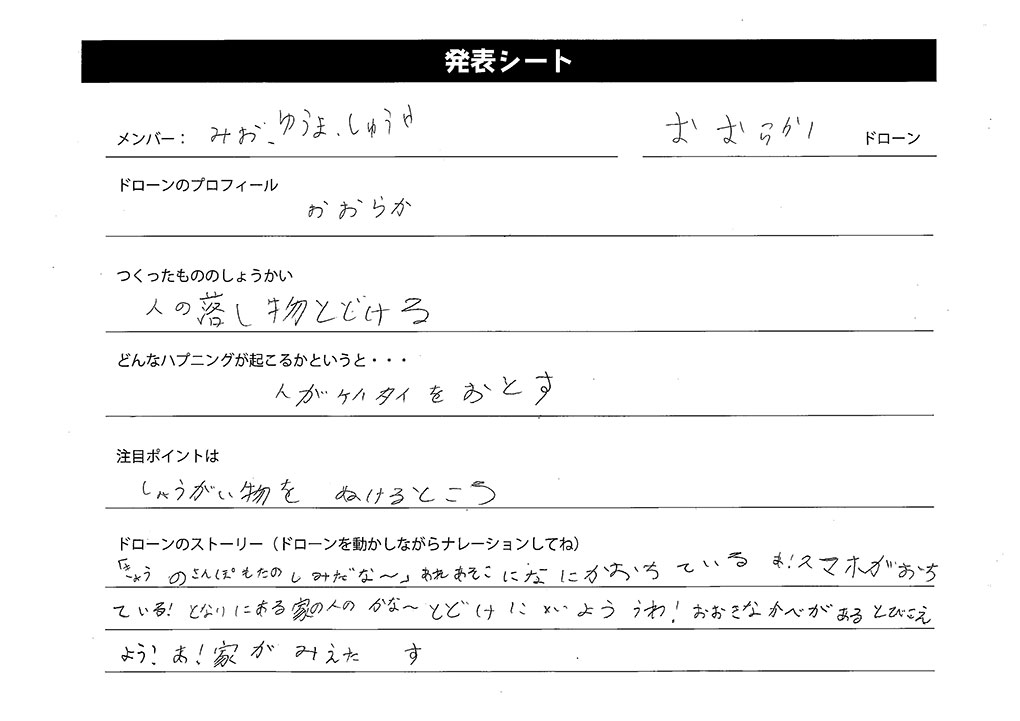 発表シート
メンバー： みお、ゆうま、しゅうや おむらかり ドローン
ドローンのプロフィール
おおらか
つくったもののしょうかい
人の落し物とどける
どんなハプニングが起こるかというと・・・
人がケイタイをおとす
注目ポイントは
しゃうがい物を ぬけるところ
ドローンのストーリー（ドローンを動かしながらナレーションしてね）
「きょうのさんぽもたのしみだな〜」あれあそこになにかおちている あ!スマホがおち
ている! となりにある家の人の かな〜 とどけに いこう うわ! おおきなかべがある とびこえ
よう! あ! 家が みえた す